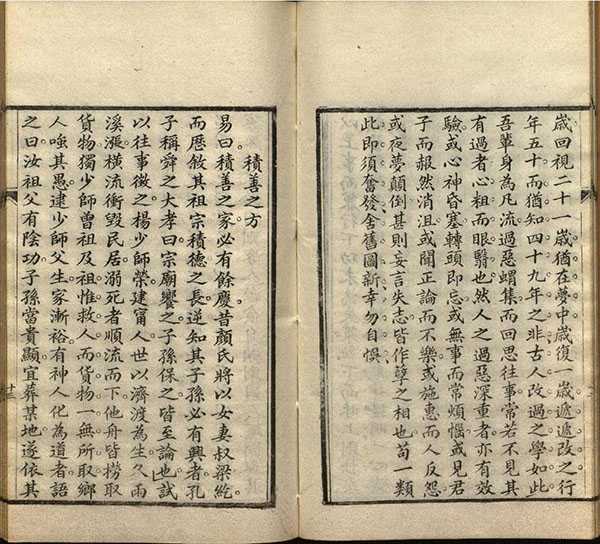 歲回視二十一歲猶在夢中歲復一歲遞遞改之行
年五十而猶知四十九年之非古人改過之學如此
吾輩身為凡流過惡蝟集而回思往事常若不見其
有過者心粗而眼翳也然人之過惡深重者亦有效
驗或心神昏塞轉頭即忘或無事而常煩惱或見君
子而赧然消沮或聞正論而不樂或施惠而人反怨
或夜夢顛倒甚則妄言失志皆作孽之相也苟一類
此即須奮發舍舊圖新幸勿自悞
積善之方
易曰積善之家必有餘慶昔顏氏將以女妻叔梁紇
而歷敘其祖宗積德之長逆知其子孫必有興者孔
子稱舜之大孝曰宗廟饗之子孫保之皆至論也試
以往事徵之楊少師榮建甯人世以濟渡為生久雨
溪漲橫流衝毀民居溺死者順流而下他舟皆撈取
貨物獨少師曾祖及祖惟救人而貨物一無所取鄉
人嗤其愚逮少師父生家漸裕有神人化為道者語
之曰汝祖父有陰功子孫當貴顯宜葬某地遂依其